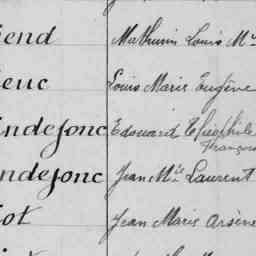 iend Mathurin Louis M
ieuc Louis Marie Eugène
indejonc Edouard Théophile
François
ndejonc Jean Mie Laurent
iot Jean Marie Arsène